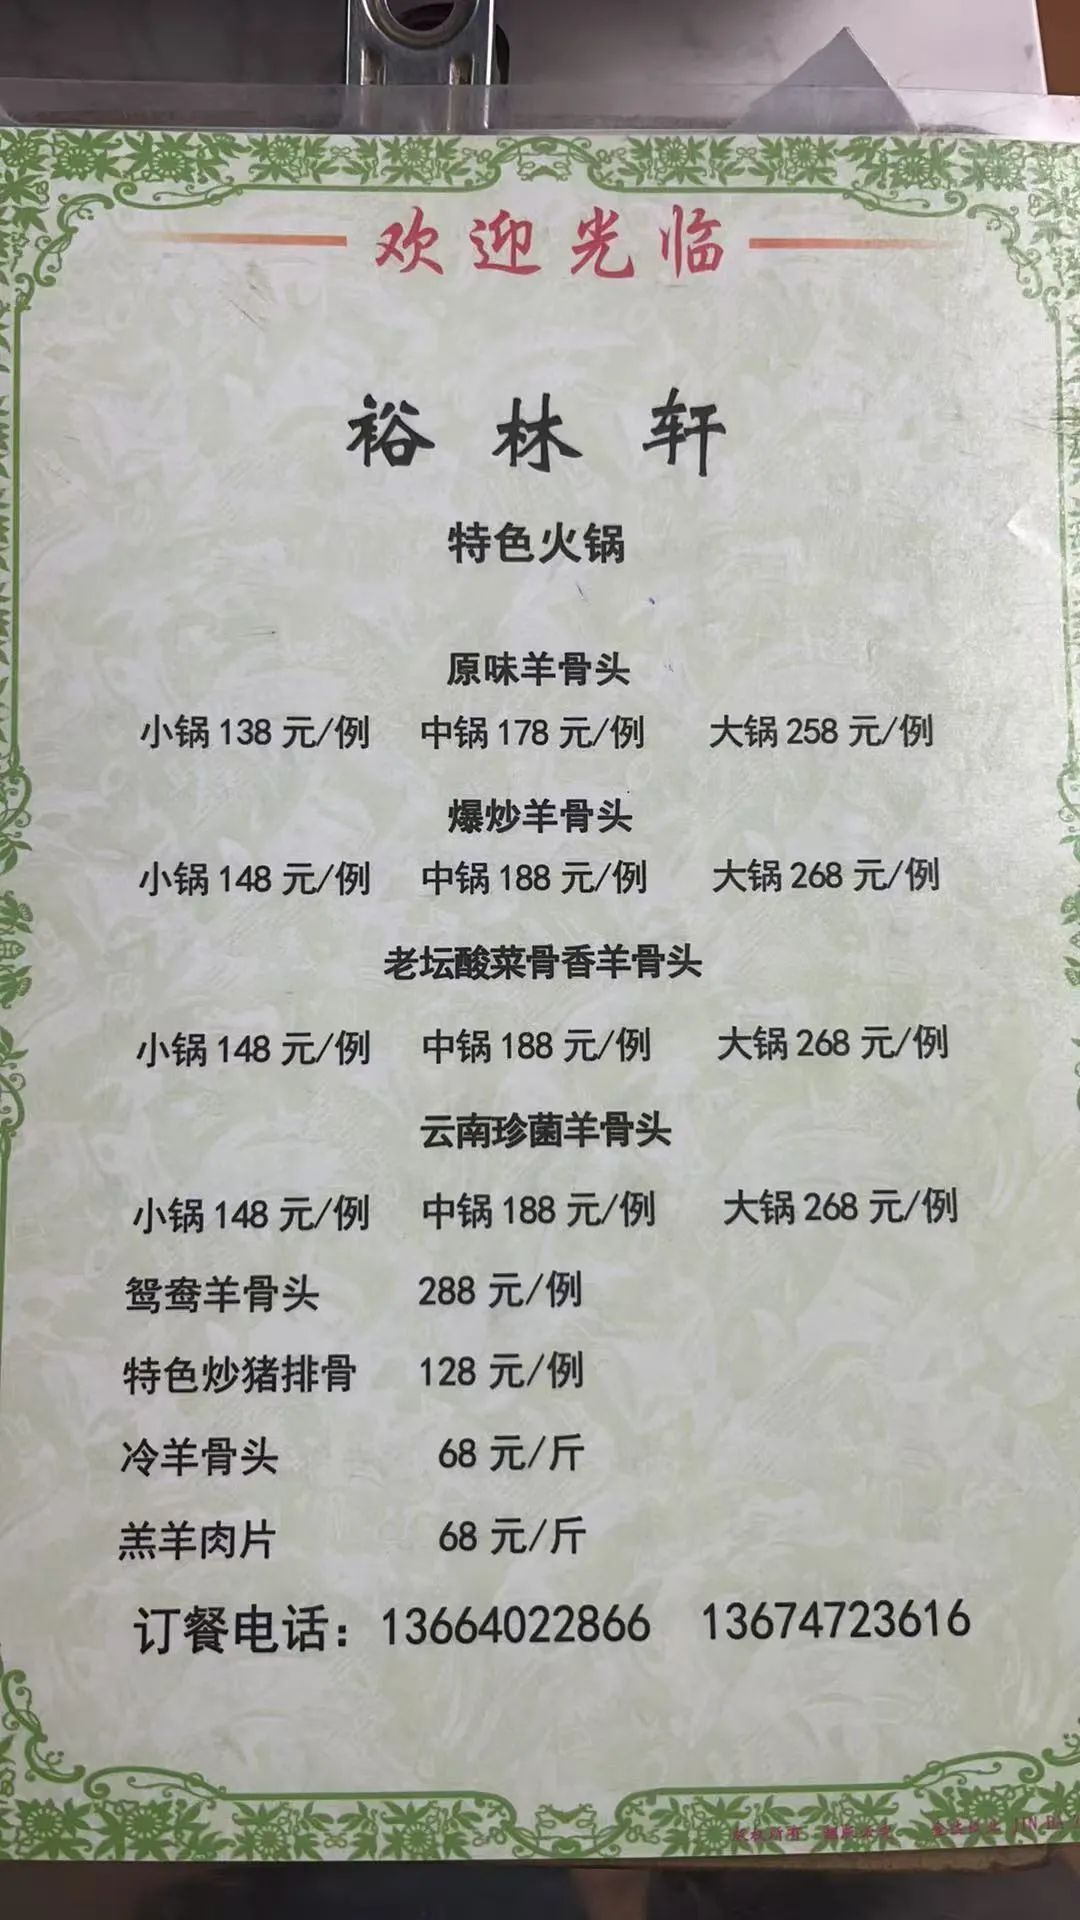 欢迎光临
裕林轩
特色火锅
原味羊骨头
小锅138元/例 中锅178元/例 大锅258元/例
爆炒羊骨头
小锅148元/例 中锅188元/例 大锅268元/例
老坛酸菜骨香羊骨头
小锅148元/例 中锅188元/例 大锅268元/例
云南珍菌羊骨头
小锅148元/例 中锅188元/例 大锅268元/例
鸳鸯羊骨头 288元/例
特色炒猪排骨 128元/例
冷羊骨头 68元/斤
羔羊肉片 68元/斤
订餐电话：13664022866 13674723616
版权所有